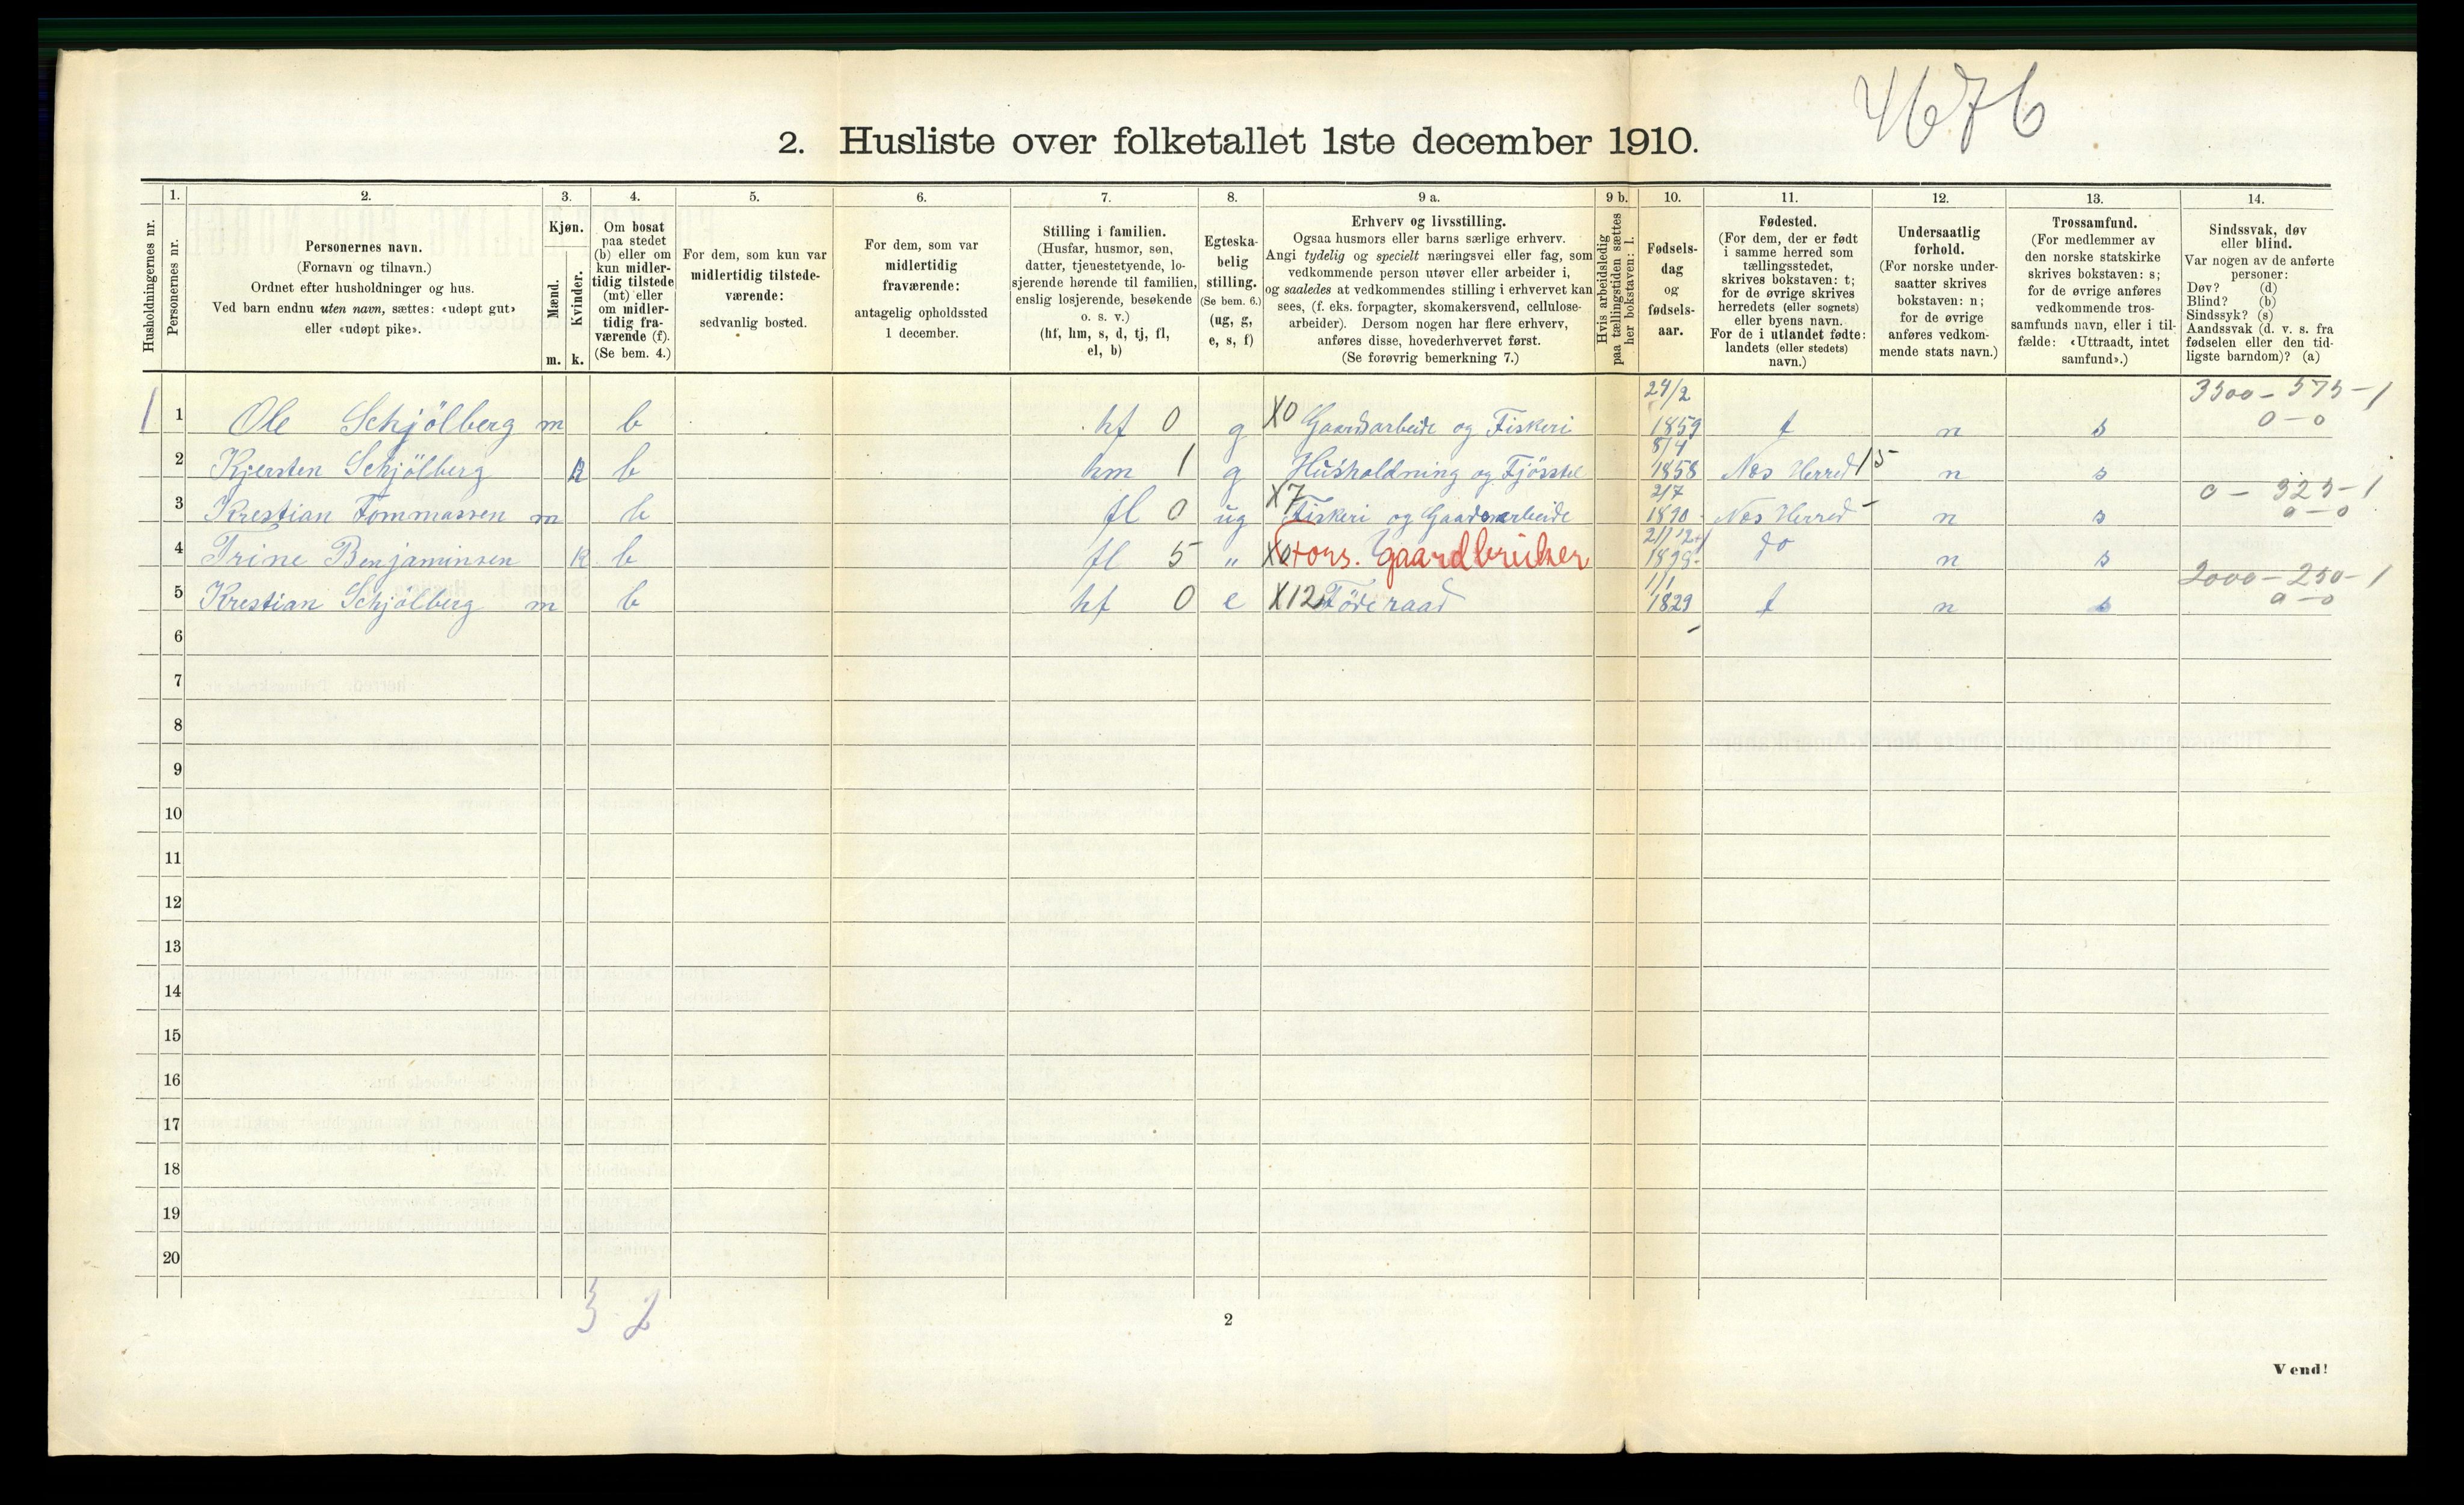 4676
2. Husliste over folketallet 1ste december 1910.
Husholdningernes nr.
1.
Personernes nr.
2.
Personernes navn.
(Fornavn og tilnavn.)
Ordnet efter husholdninger og hus.
Ved barn endnu uten navn, sættes: «udøpt gut»
eller «udøpt pike».
3.
Kjøn.
Mænd.
Kvinder.
m. k.
4.
Om bosat
paa stedet
(b) eller om
kun midler-
tidig tilstede
(mt) eller
om midler-
tidig fra-
værende (f).
(Se bem. 4.)
5.
For dem, som kun var
midlertidig tilstede-
værende:
sedvanlig bosted.
6.
For dem, som var
midlertidig
fraværende:
antagelig opholdssted
1 december.
7.
Stilling i familien.
(Husfar, husmor, søn,
datter, tjenestetyende, lo-
sjerende hørende til familien,
enslig losjerende, besøkende
o. s. v.)
(hf, hm, s, d, tj, fl,
el, b)
8.
Egteska-
belig
stilling.
(Se bem. 6.)
(ug, g,
e, s, f)
9 a.
Erhverv og livsstilling.
Ogsaa husmors eller barns særlige erhverv.
Angi tydelig og specielt næringsvei eller fag, som
vedkommende person utøver eller arbeider i,
og saaledes at vedkommendes stilling i erhvervet kan
sees, (f. eks. forpagter, skomakersvend, cellulose-
arbeider). Dersom nogen har flere erhverv,
anføres disse, hovederhvervet først.
(Se forøvrig bemerkning 7.)
9 b.
Hvis arbeidsledig
paa tællingstiden sættes
her bokstaven: l.
10.
Fødsels-
dag
og
fødsels-
aar.
11.
Fødested.
(For dem, der er født
i samme herred som
tællingsstedet,
skrives bokstaven: t;
for de øvrige skrives
herredets (eller sognets)
eller byens navn.
For de i utlandet fødte:
landets (eller stedets)
navn.)
12.
Undersaatlig
forhold.
(For norske under-
saatter skrives
bokstaven: n;
for de øvrige
anføres vedkom-
mende stats navn.)
13.
Trossamfund.
(For medlemmer av
den norske statskirke
skrives bokstaven: s;
for de øvrige anføres
vedkommende tros-
samfunds navn, eller i til-
fælde: «Uttraadt, intet
samfund».)
14.
Sindssvak, døv
eller blind.
Var nogen av de anførte
personer:
Døv? (d)
Blind? (b)
Sindssyk? (s)
Aandssvak (d. v. s. fra
fødselen eller den tid-
ligste barndom)? (a)
24/2 3500-575-1
1 1 Ole Schjölberg m b hf 0 g X0 Gaardsarbeide og Fiskeri 1859 t n s 0-0
8/4
2 Kjersten Schjölberg k b hm 1 g Husholdning og Fjösstel 1858 Nes Herred 15 n s
2/7 0-925-1
3 Krestian Tommassen m b fl 0 ug X7 Fiskeri og Gaardsarbeide 1890 Nes Herred n s 0-0
21/12
4 Trine Benjaminsen k b fl 5 „ X0 fors. gaardbruker do n s
1/1 2000-250-1
5 Krestian Schjölberg m b hf 0 e X12 Föderaad 1829 t n s 0-0
6
7
8
9
10
11
12
13
14
15
16
17
18
19
20
3 2
2
Vend!